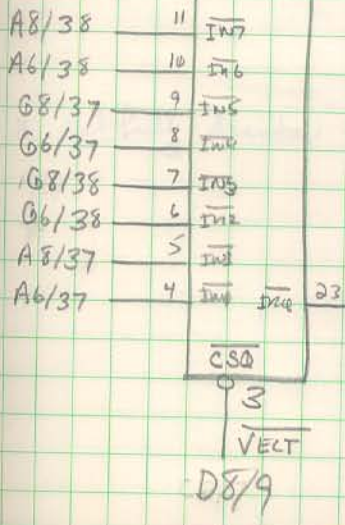 A8/38 11 IN7
A6/38 10 IN6
G8/37 9 IN5
G6/37 8 IN4
G8/38 7 IN3
G6/38 6 IN2
A8/37 5 IN1
A6/37 4 IN0 23
CS0
3
VECT
D8/9